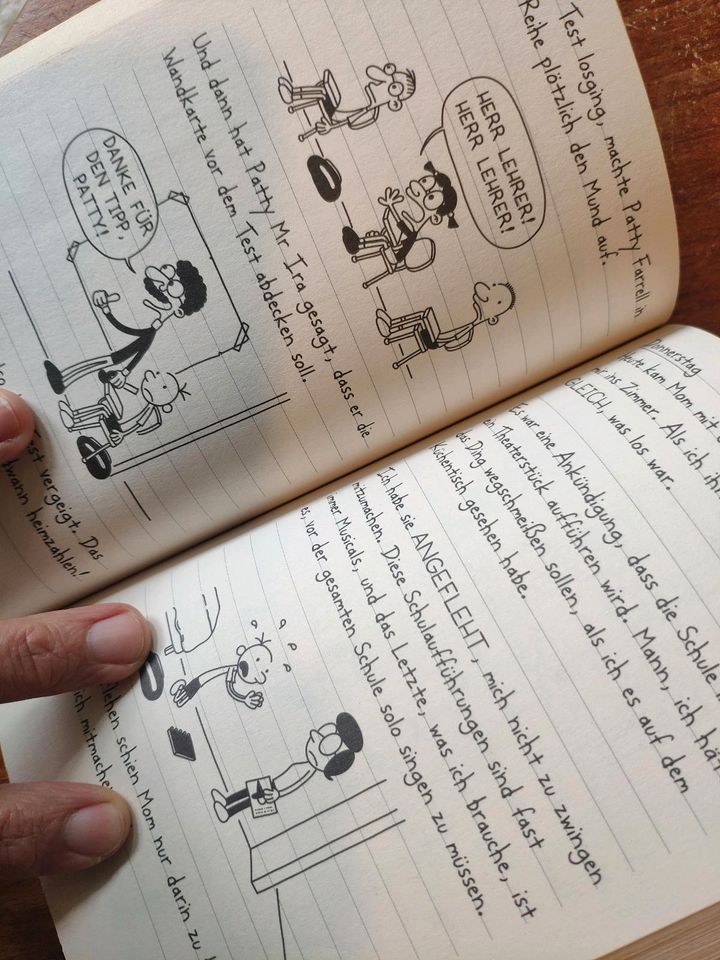 Test losging, machte Patty Farrell in
Reihe plötzlich den Mund auf.
HERR LEHRER!
HERR LEHRER!
Und dann hat Patty Mr. Ira gesagt, dass er die
Wandkarte vor dem Test abdecken soll.
DANKE FÜR
DEN TIPP,
PATTY!
vergeigt. Das
heimzahlen!
Donnerstag
Heute kam Mom mit
ins Zimmer. Als ich
GLEICH, was los war.
Es war eine Ankündigung, dass die Schule
Theaterstück aufführen wird. Mann, ich
das Ding wegschmeißen sollen, als ich es auf dem
Küchentisch gesehen habe.
Ich habe sie ANGEFLEHT, mich nicht zu zwingen
mitzumachen. Diese Schulaufführungen sind fast
immer Musicals, und das Letzte, was ich brauche, ist
es, vor der gesamten Schule solo singen zu müssen.
schien Mom nur darin zu
ich